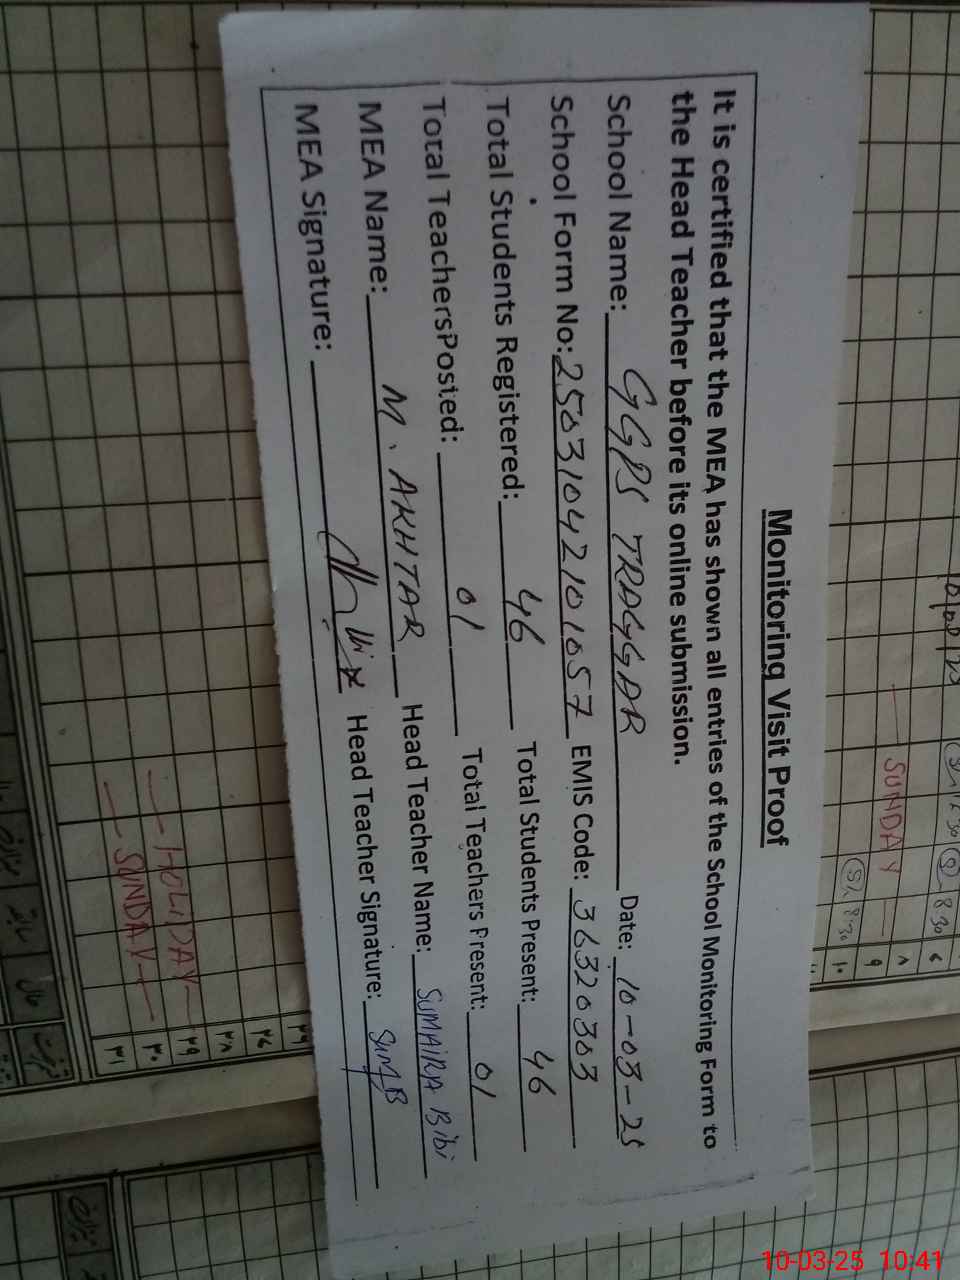 Monitoring Visit Proof
It is certified that the MEA has shown all entries of the School Monitoring Form to
the Head Teacher before its online submission.
School Name: GGPS TRAGGAR Date: 10-03-25
School Form No: 25031042101057 EMIS Code: 36320303
Total Students Registered: 46 Total Students Present: 46
Total TeachersPosted: 01 Total Teachers Present: 01
MEA Name: M. AKHTAR Head Teacher Name: SUMAIRA Bibi
MEA Signature: Head Teacher Signature: SumB
SUNDAY
8:30
8:30
HOLIDAY
SUNDAY
۸
۹
۱۰
۲۸
۲۹
۳۰
۳۱
10-03-25 10:41